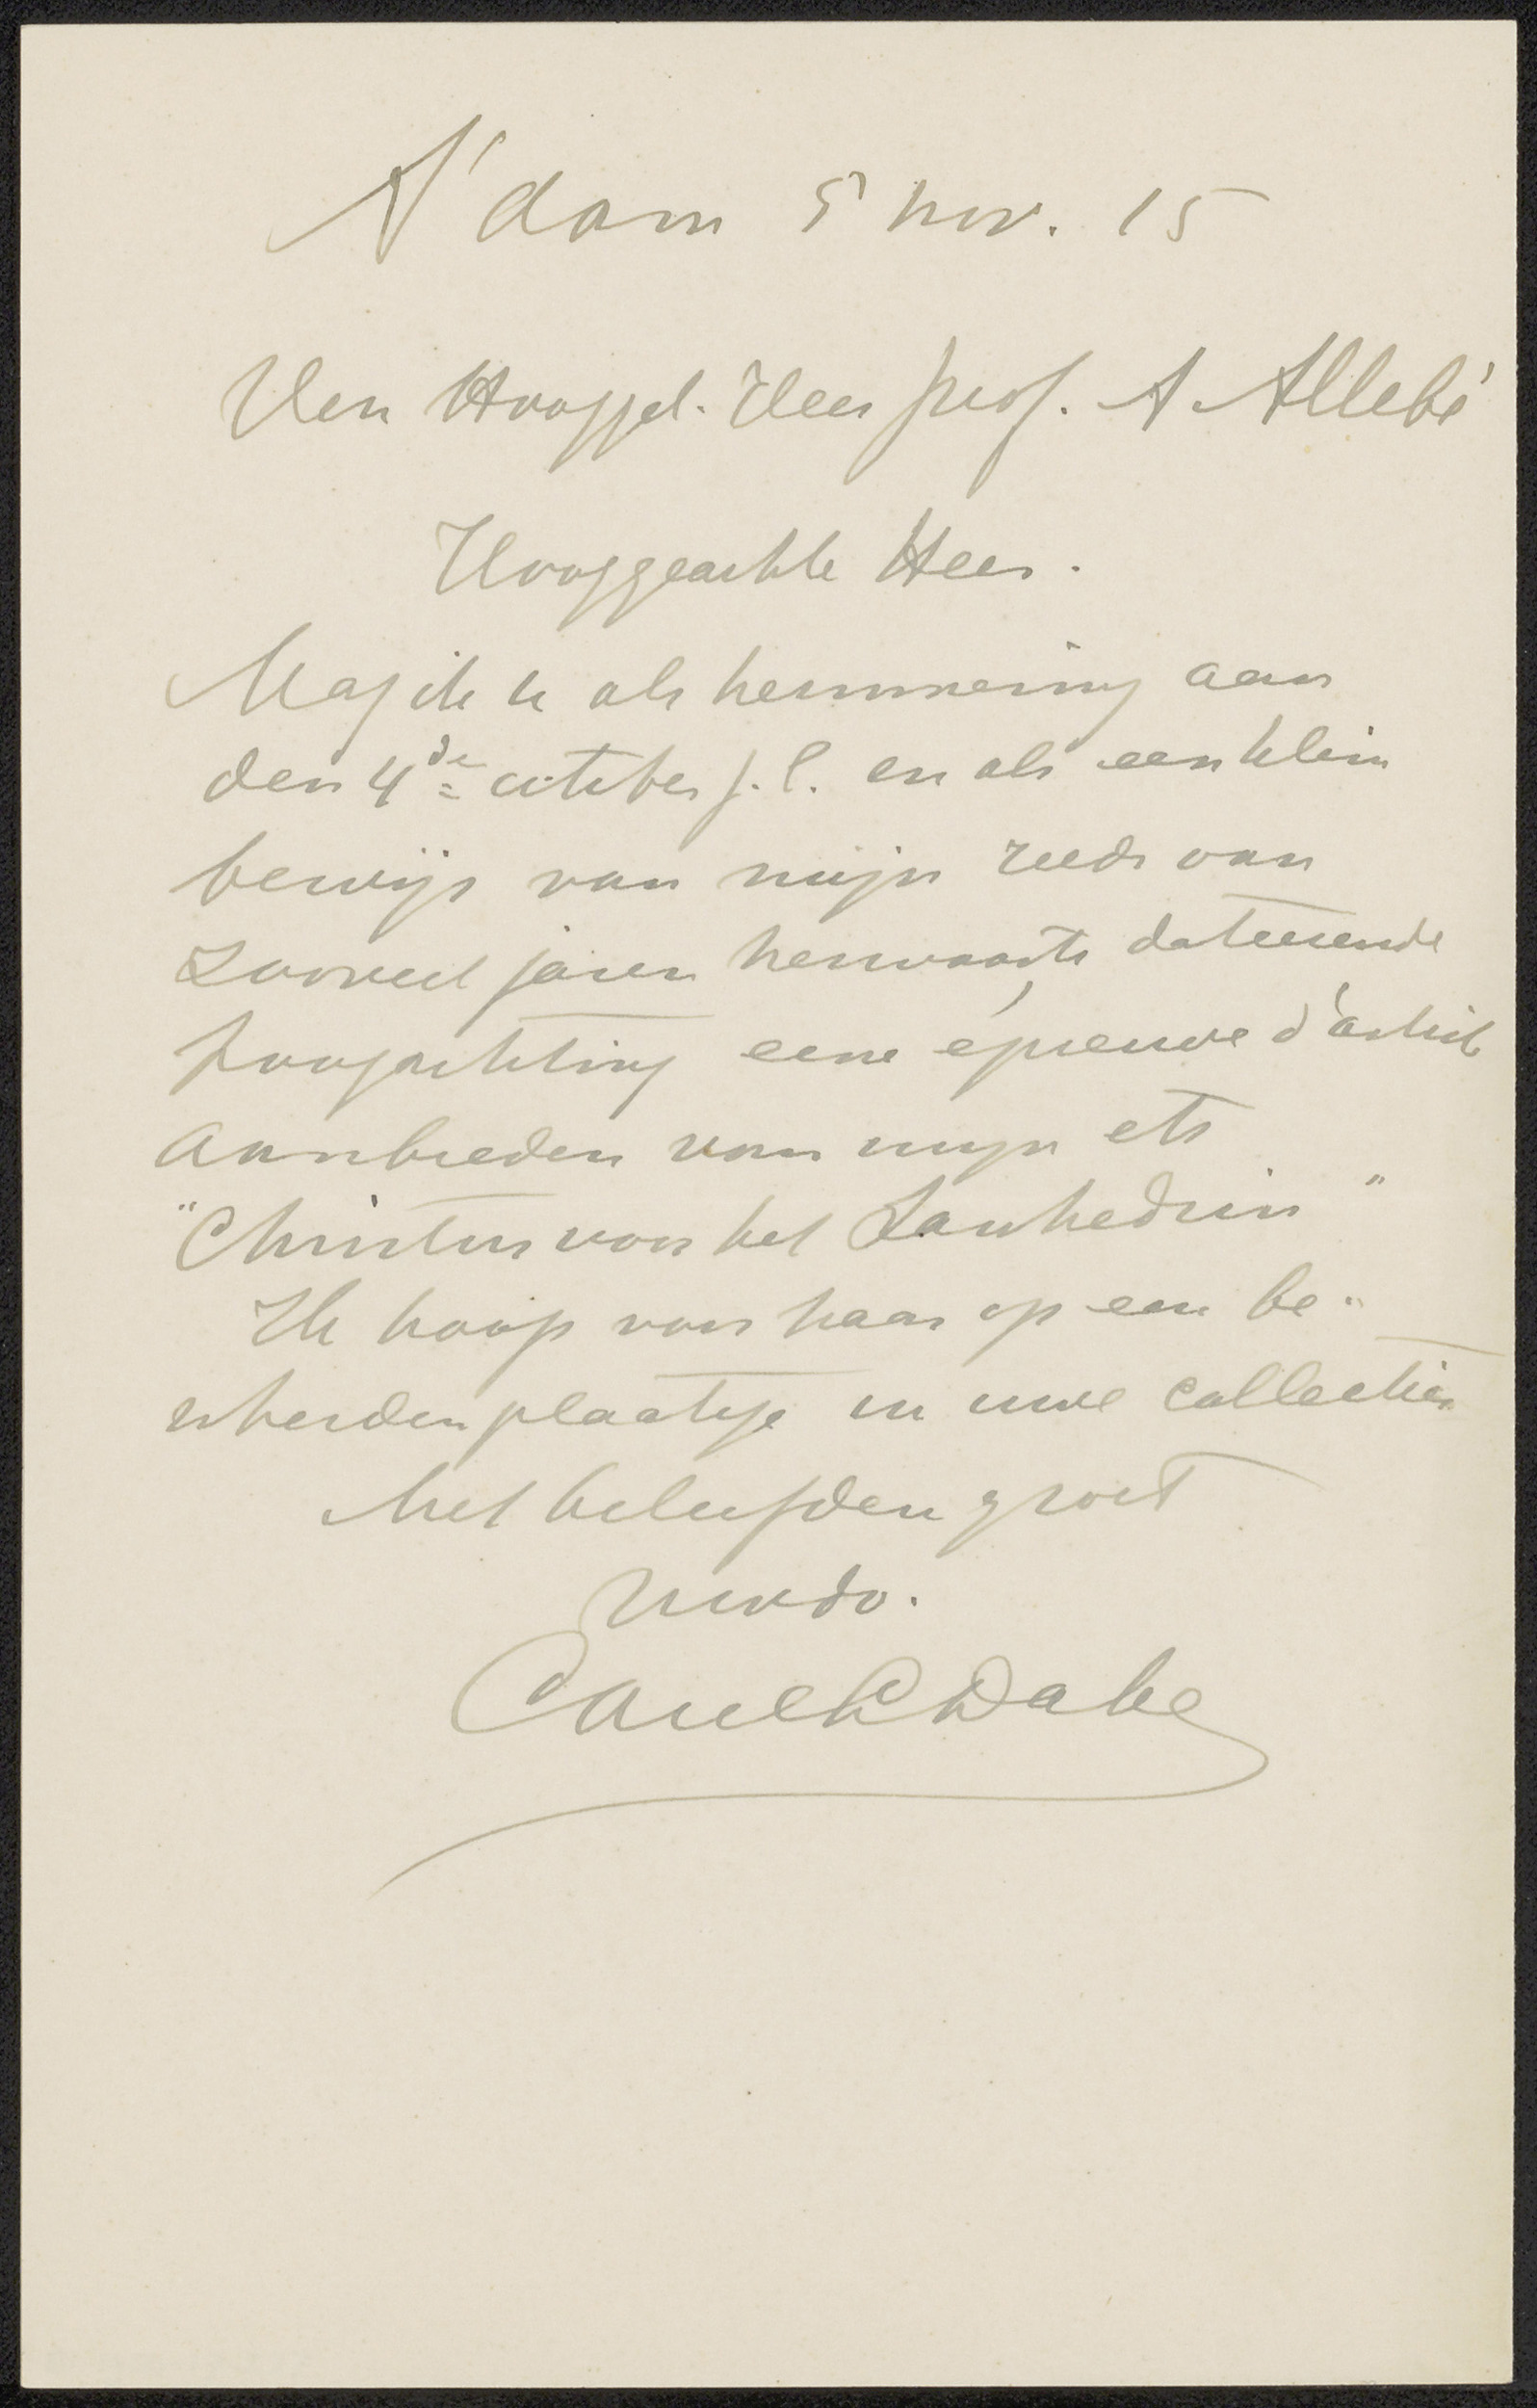 A'dam 5 nov. 15
Den Hooggel. Heer prof. A Allebé
Hooggeachte Heer.
Mag ik u als herinnering aan
den 4de october j.l. en als een klein
bewijs van mijn reeds van
zooveel jaren herwaarts dateerende
hoogachting eene épreuve d'artist
aanbieden van mijn ets
"Christus voor het Sanhedrin"
Ik hoop voor haar op een be-
scheiden plaatsje in uwe collectie.
Met beleefden groet
Uwdv.
Carel L Dake